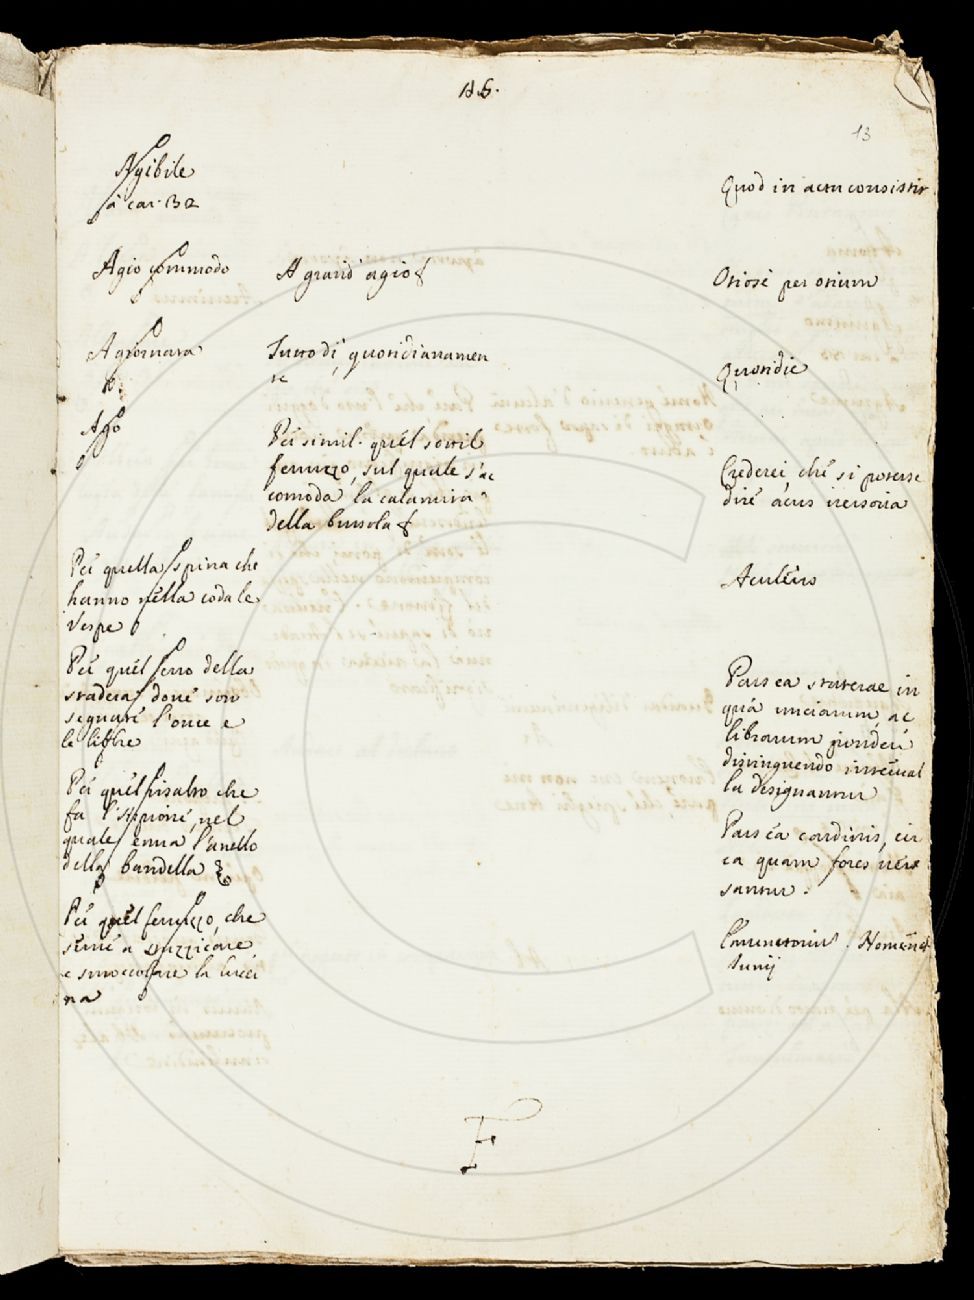 AG.
13
Agibile
à car. 132
Quod in actu consistit
Agio commodo
A grand' agio
Otiosè per otium
A giornata
Tutto dì, quotidianamen
te
Quotidie
Ago
Per simil. quel sottil
ferruzzo, sul quale s'ac
comoda la calamita
della bussola
Crederei, che si potesse
dire acus versoria
Per quella spina che
hanno nella coda le
Vespe
Aculeus
Per quel ferro della
stadera dove son
segnate l'once e
le libre
Pars ea staterae in
qua unciarum, ac
librarum ponderi
distinguendo interval
la designantur
Per quel pisastro che
fa l'arpione, nel
quale entra l'anello
della bandella
Pars ea cardinis, cir
ca quam fores ver
santur.
Per quel ferruzzo, che
serve a stuzzicare,
e smoccolare la lucer
na
Emunctorius. Nomencl.
Iunij
F